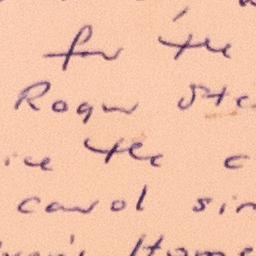 for the
Roger Ste
ice the c
carol sin
Home